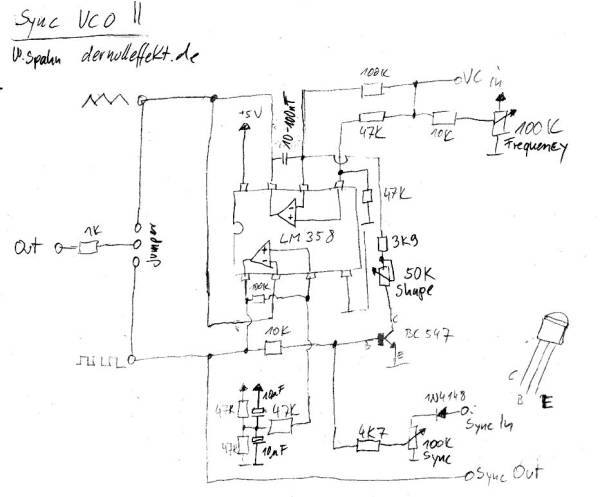 Sync VCO II
W. Spahn dernulleffekt.de
100K
VC in
+5V
10-100nF
47K
10K
100K
Frequency
47K
1K
Out
Jumper
LM 358
3K9
50K
Shape
100K
C
BC 547
B
E
10K
10µF
47K
47K
47K
10µF
1N4148
Sync In
4K7
100K
Sync
C
B
E
Sync Out